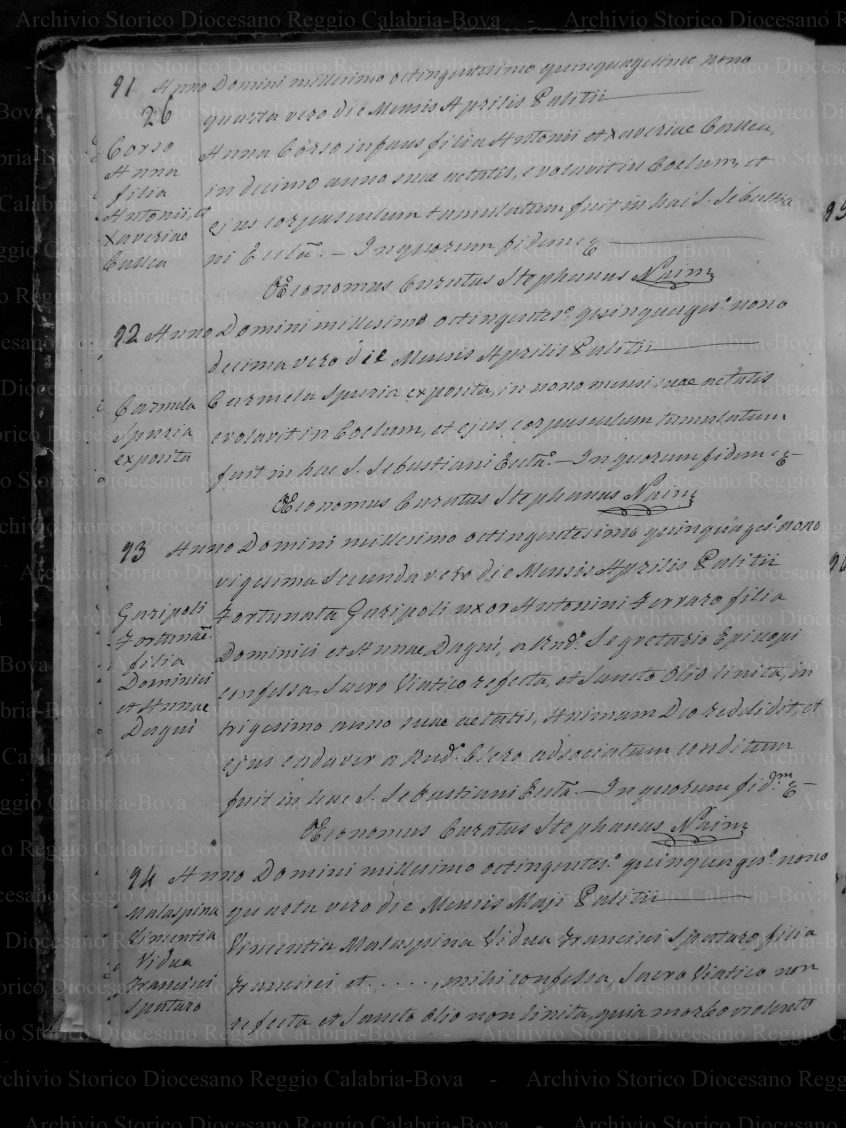 91 Anno Domini millesimo octingentesimo quinquagesimo nono
26
quarta vero die Mensis Aprilis Palitii
Corso
Anna
filia
Antonii, et
Xaveriae
Anna Corso infans filia Antonii et Xaveriae
in decimo anno suae aetatis, evolavit in Coelum, et
ejus corpusculum tumulatum fuit in hac S. Sebastia
ni Eccla. - In quorum fidem
OEconomus Curatus Stephanus Naim
92 Anno Domini millesimo octingentes.o quinquages.o nono
decima vero die Mensis Aprilis Palitii
Carmela
Spuria
exposita
Carmela Spuria exposita, in nono mensi suae aetatis
evolavit in Coelum, et ejus corpusculum tumulatum
fuit in hac S. Sebastiani Eccla. - In quorum fidem
OEconomus Curatus Stephanus Naim
93 Anno Domini millesimo octingentesimo quinquages.o nono
vigesima secunda vero die Mensis Aprilis Palitii
Garipoli
Fortunata
filia
Dominici
et Annae
Daqui
Fortunata Garipoli uxor Antonini Ferraro filia
Dominici et Annae Daqui, a Rnd.o Segretario Episcopi
confessa, Sacro Viatico refecta, et Sancto Olio linita, in
trigesimo anno suae aetatis, Animam Deo reddidit, et
ejus cadaver a Rnd.o Clero adsociatum conditum
fuit in hac S. Sebastiani Eccla. - In quorum fid.m
OEconomus Curatus Stephanus Naim
94 Anno Domini millesimo octingentes.o quinquages.o nono
quarta vero die Mensis Maji Palitii
Malaspina
Vincentia
Vidua
Francisci
Spataro
Vincentia Malaspina Vidua Francisci Spataro, filia
Francisci et . . . . . , mihi confessa, Sacro Viatico non
refecta et Sancto Olio non linita, quia morbo violento